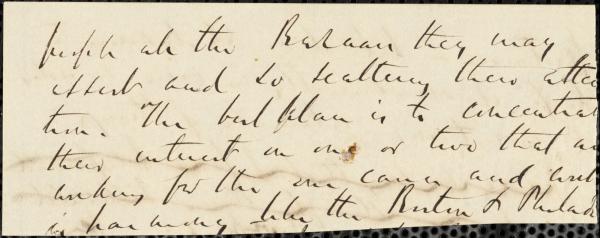 people at the Bazaar they may
assert and so scattering their atten
tion. The best plan is to concentrat
their interest on one or two that a
working for the one cause and
in harmony like the Boston & Philad